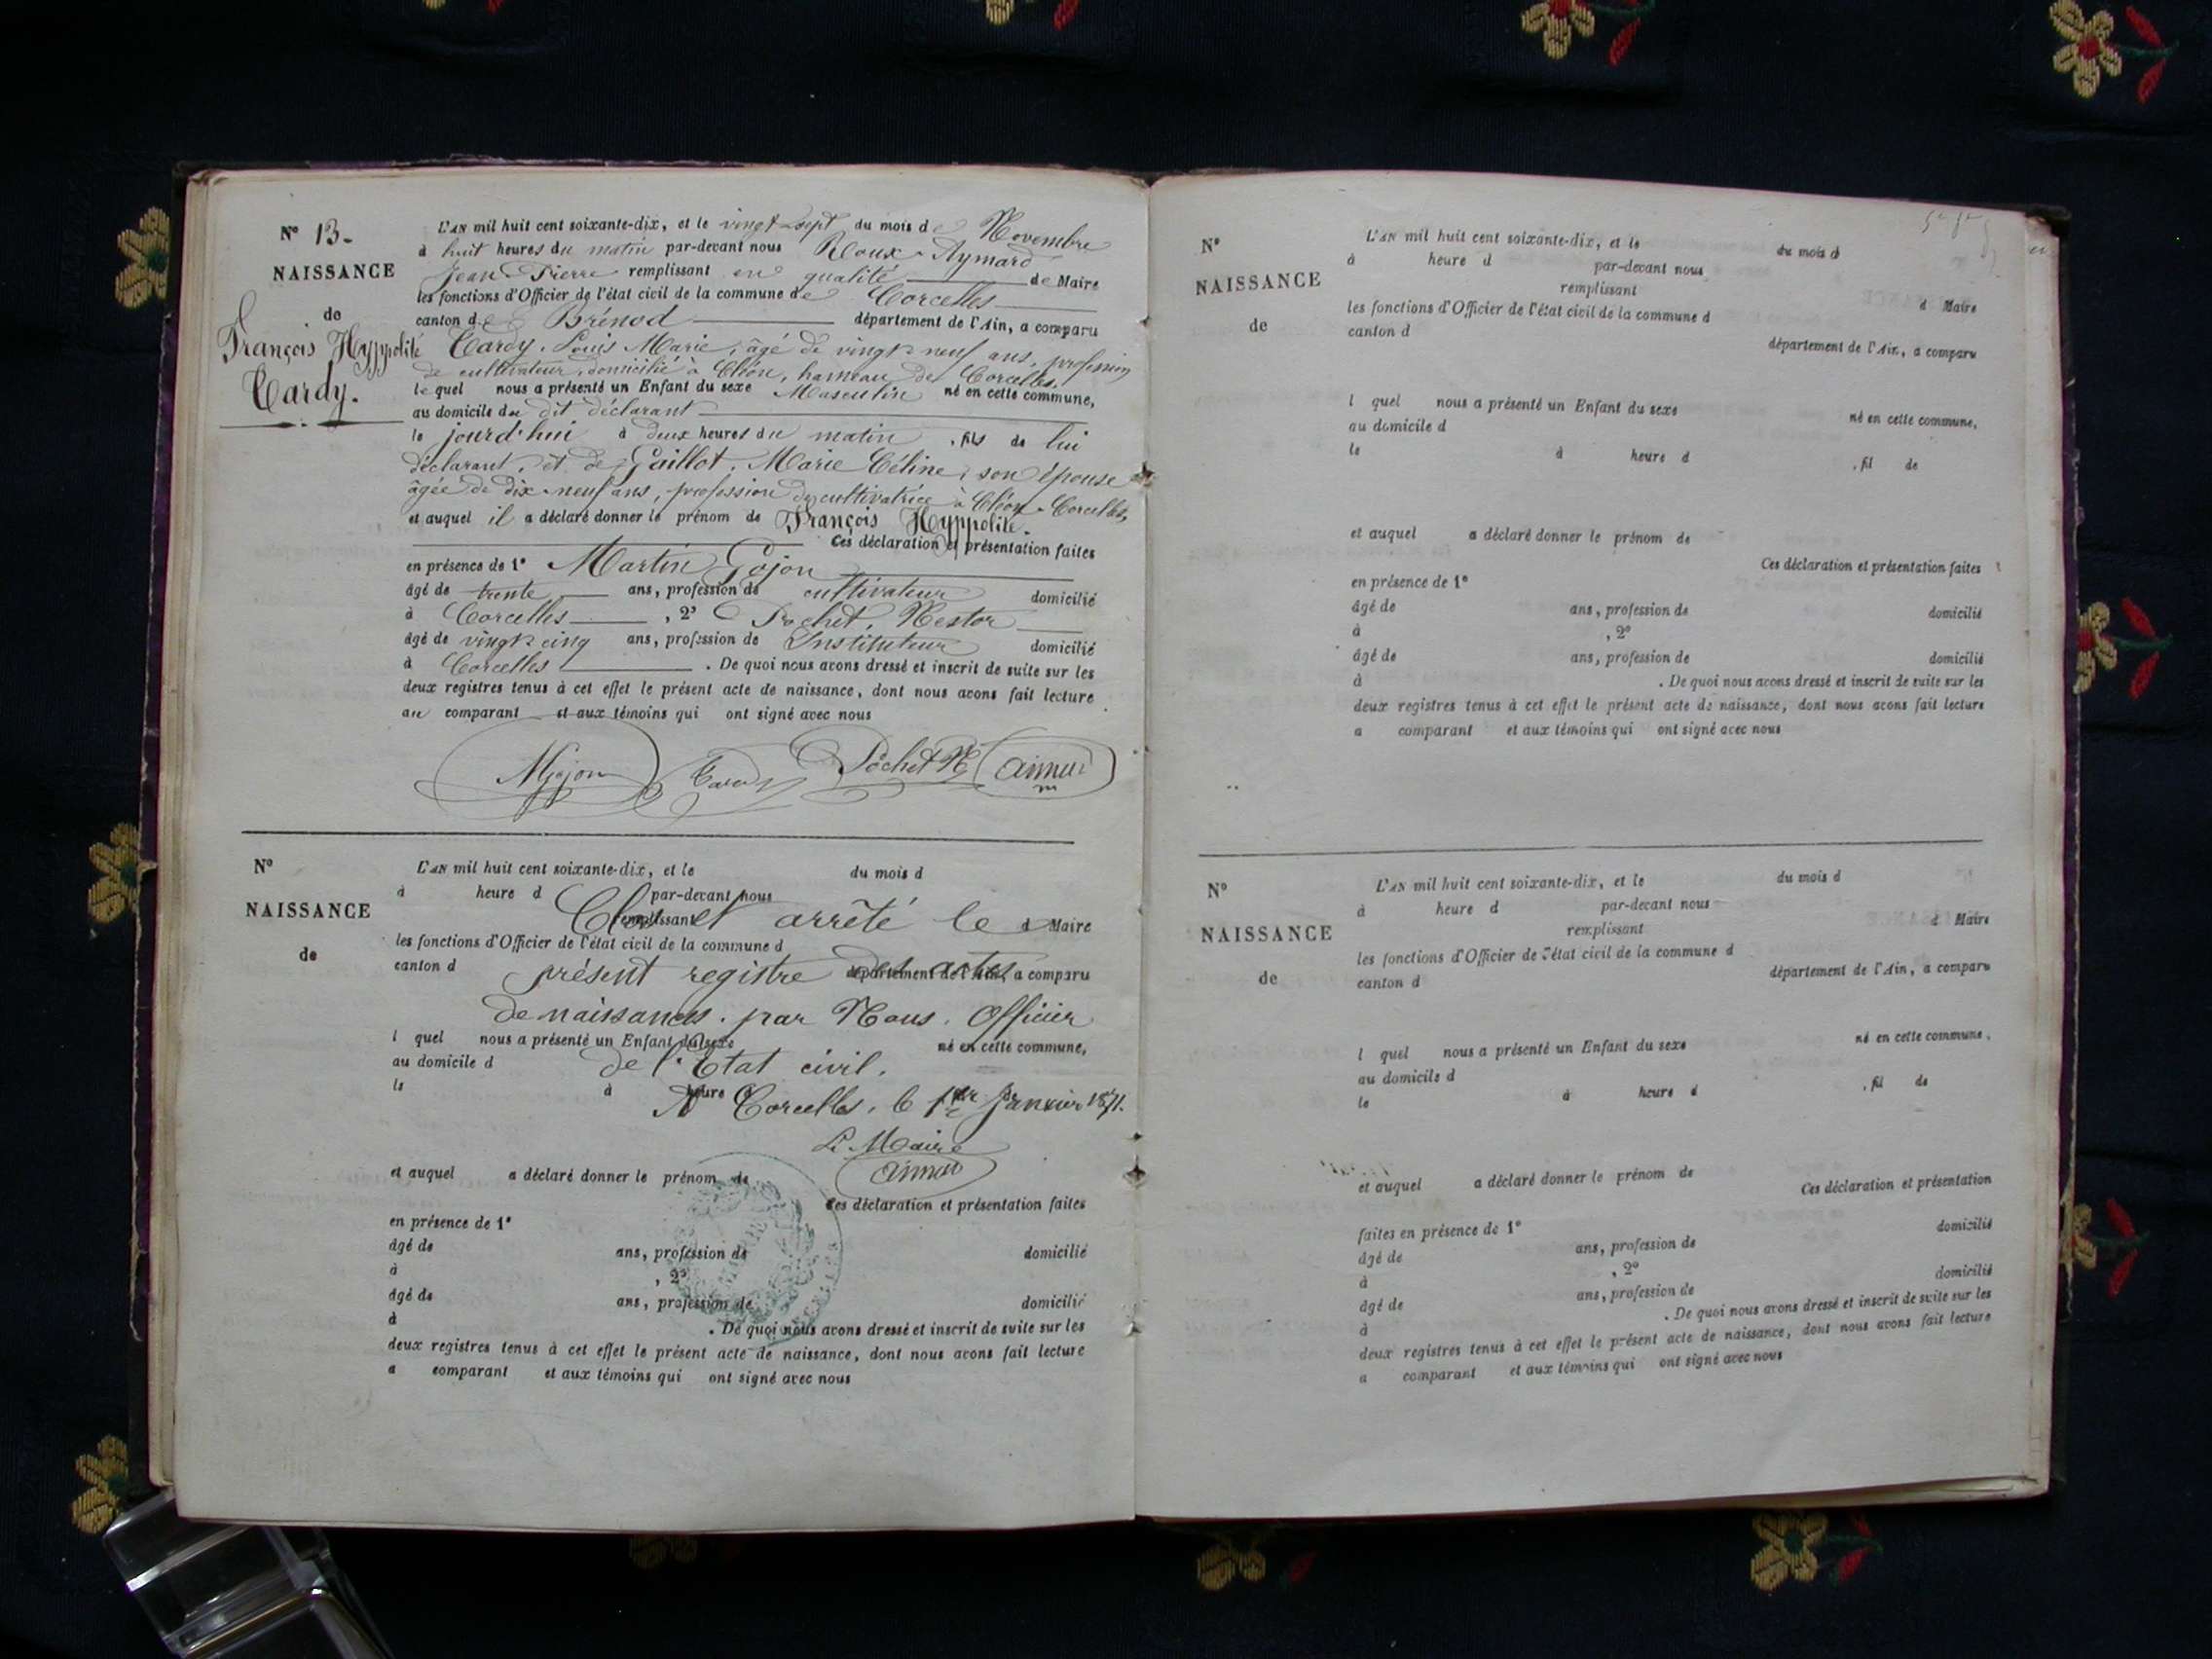 N° 13.
NAISSANCE
de
François Hyppolite
Tardy.
L'AN mil huit cent soixante-dix, et le vingt sept du mois de Novembre
à huit heures du matin par-devant nous Roux Aymard
Jean Pierre remplissant en qualité de Maire
les fonctions d'Officier de l'état civil de la commune de Corcelles
canton de Brénod département de l'Ain, a comparu
Tardy, Louis Marie, âgé de vingt neuf ans, profession
de cultivateur, domicilié à Cléon, hameau de Corcelles.
le quel nous a présenté un Enfant du sexe Masculin né en cette commune,
au domicile du dit déclarant
le jourd'hui à deux heures du matin, fils de lui
déclarant, et de Gaillot, Marie Céline, son épouse
âgée de dix-neuf ans, profession de cultivatrice à Cléon-Corcelles,
et auquel il a déclaré donner le prénom de François Hyppolite.
Ces déclaration et présentation faites
en présence de 1° Martin Gojon
âgé de trente ans, profession de cultivateur domicilié
à Corcelles, 2° Pochet, Nestor
âgé de vingt cinq ans, profession de Instituteur domicilié
à Corcelles. De quoi nous avons dressé et inscrit de suite sur les
deux registres tenus à cet effet le présent acte de naissance, dont nous avons fait lecture
au comparant et aux témoins qui ont signé avec nous
MGojon Tardy Pochet N aimar
N°
NAISSANCE
de
L'AN mil huit cent soixante-dix, et le du mois d
à heure d par-devant nous
remplissant d Maire
Clos et arrêté le
les fonctions d'Officier de l'état civil de la commune d
canton d département de l'Ain, a comparu
présent registre des actes
de naissances. par Nous, Officier
l quel nous a présenté un Enfant du sexe né en cette commune,
au domicile d
de l'Etat civil.
le à heure
A Corcelles, le 1er Janvier 1871.
Le Maire
aimar
et auquel a déclaré donner le prénom de
Ces déclaration et présentation faites
en présence de 1°
âgé de ans, profession de domicilié
à , 2°
âgé de ans, profession de domicilié
à . De quoi nous avons dressé et inscrit de suite sur les
deux registres tenus à cet effet le présent acte de naissance, dont nous avons fait lecture
a comparant et aux témoins qui ont signé avec nous
N°
NAISSANCE
de
L'AN mil huit cent soixante-dix, et le du mois d
à heure d par-devant nous
remplissant d Maire
les fonctions d'Officier de l'état civil de la commune d
canton d département de l'Ain, a comparu
l quel nous a présenté un Enfant du sexe né en cette commune,
au domicile d
le à heure d , fil de
et auquel a déclaré donner le prénom de
Ces déclaration et présentation faites
en présence de 1°
âgé de ans, profession de domicilié
à , 2°
âgé de ans, profession de domicilié
à . De quoi nous avons dressé et inscrit de suite sur les
deux registres tenus à cet effet le présent acte de naissance, dont nous avons fait lecture
a comparant et aux témoins qui ont signé avec nous
N°
NAISSANCE
de
L'AN mil huit cent soixante-dix, et le du mois d
à heure d par-devant nous
remplissant d Maire
les fonctions d'Officier de l'état civil de la commune d
canton d département de l'Ain, a comparu
l quel nous a présenté un Enfant du sexe né en cette commune,
au domicile d
le à heure d , fil de
et auquel a déclaré donner le prénom de
Ces déclaration et présentation
faites en présence de 1° domicilié
âgé de ans, profession de
à , 2° domicilié
âgé de ans, profession de
à . De quoi nous avons dressé et inscrit de suite sur les
deux registres tenus à cet effet le présent acte de naissance, dont nous avons fait lecture
a comparant et aux témoins qui ont signé avec nous